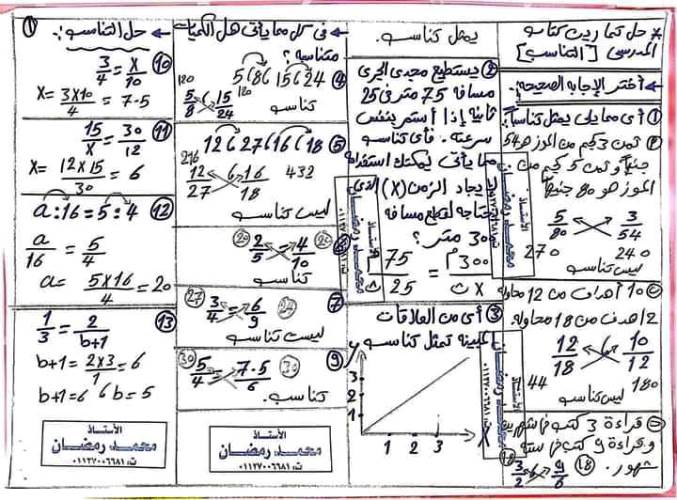 * حل تمارين كتاب
المدرسى [التناسب]
← أختر الإجابة الصحيحة:
① أى مما يلى يمثل تناسباً
ثمن 3 كجم من الموز هو 54
جنيهاً وثمن 5 كجم من
الموز هو 80 جنيهاً
5/80 3/54
270 240
ليس تناسب
10 أهداف من 12 محاولة
12 هدف من 18 محاولة.
12/18 6 10/12
144 180
ليس تناسب
قراءة 3 كتب فى شهرين
وقراءة 9 كتب فى ستة
شهور. ⑱
⑱ 3/2 9/6
يمثل تناسب.
② يستطيع مجدى الجرى
مسافة 75 متر فى 25
ثانية إذا استمر بنفس
سرعته. فأى تناسب
مما يأتى يمكنك استخدامه
لإيجاد الزمن (X) الذى
يحتاجه لقطع مسافة
300 متر؟
75/25 = 300 م/X ث
③ أى من العلاقات
المبينة تمثل تناسب
y
3
2
1
1 2 3 X
← فى كل مما يأتى هل الكميات
متناسبة؟
④ 5 6 8 6 15 6 24
120 120
5/8 15/24
تناسب
⑤ 12 6 27 6 16 6 18
216
12/27 6 16/18 432
ليس تناسب
⑳ 2/5 = 4/10 ⑳
تناسب
⑦ ㉗ 3/4 = 6/9 ㉔
ليست تناسب
⑨ ㉚ 5/4 = 7.5/6 ㉚
تناسب.
الأستاذ
محمد رمضان
ت: ٠١١٢٧٠٠٦٦٨١
①
← حل التناسب:
⑩ 3/4 = X/10
X = 3×10/4 = 7.5
⑪ 15/X = 30/12
X = 12×15/30 = 6
⑫ a:16 = 5:4
a/16 = 5/4
a = 5×16/4 = 20
⑬ 1/3 = 2/b+1
b+1 = 2×3/1 = 6
b+1=6 6 b=5
الأستاذ
محمد رمضان
ت: ٠١١٢٧٠٠٦٦٨١